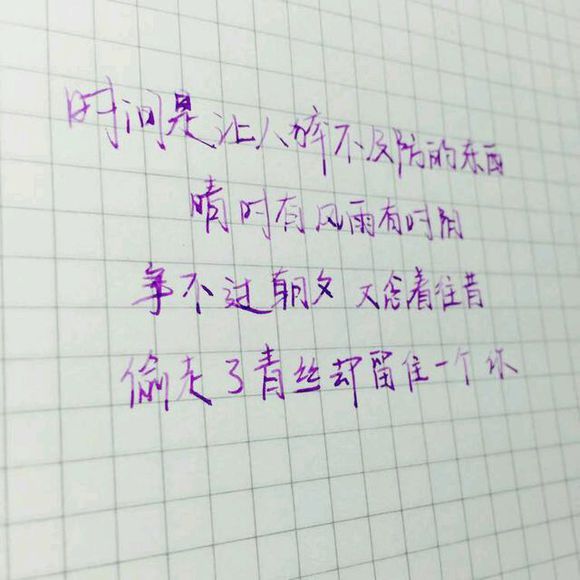 时间是让人猝不及防的东西
晴时有风雨有时阴
争不过朝夕 又念着往昔
偷走了青丝却留住一个你